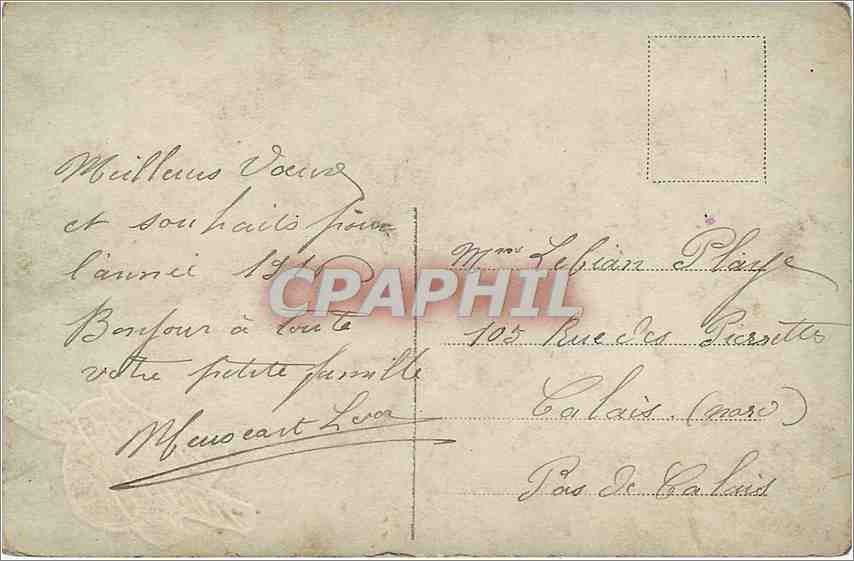 Meilleurs Vœux
et souhaits pour
l'année
Bonjour à toute
votre petite famille
CPAPHIL
Mme Lebian Playe
105 Rue des Pierrettes
Calais. (nord)
Pas de Calais